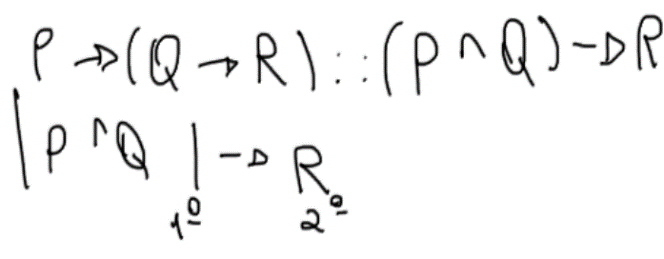 P → (Q → R) :: (P ∧ Q) → R
| P ∧ Q | → R
1º 2º